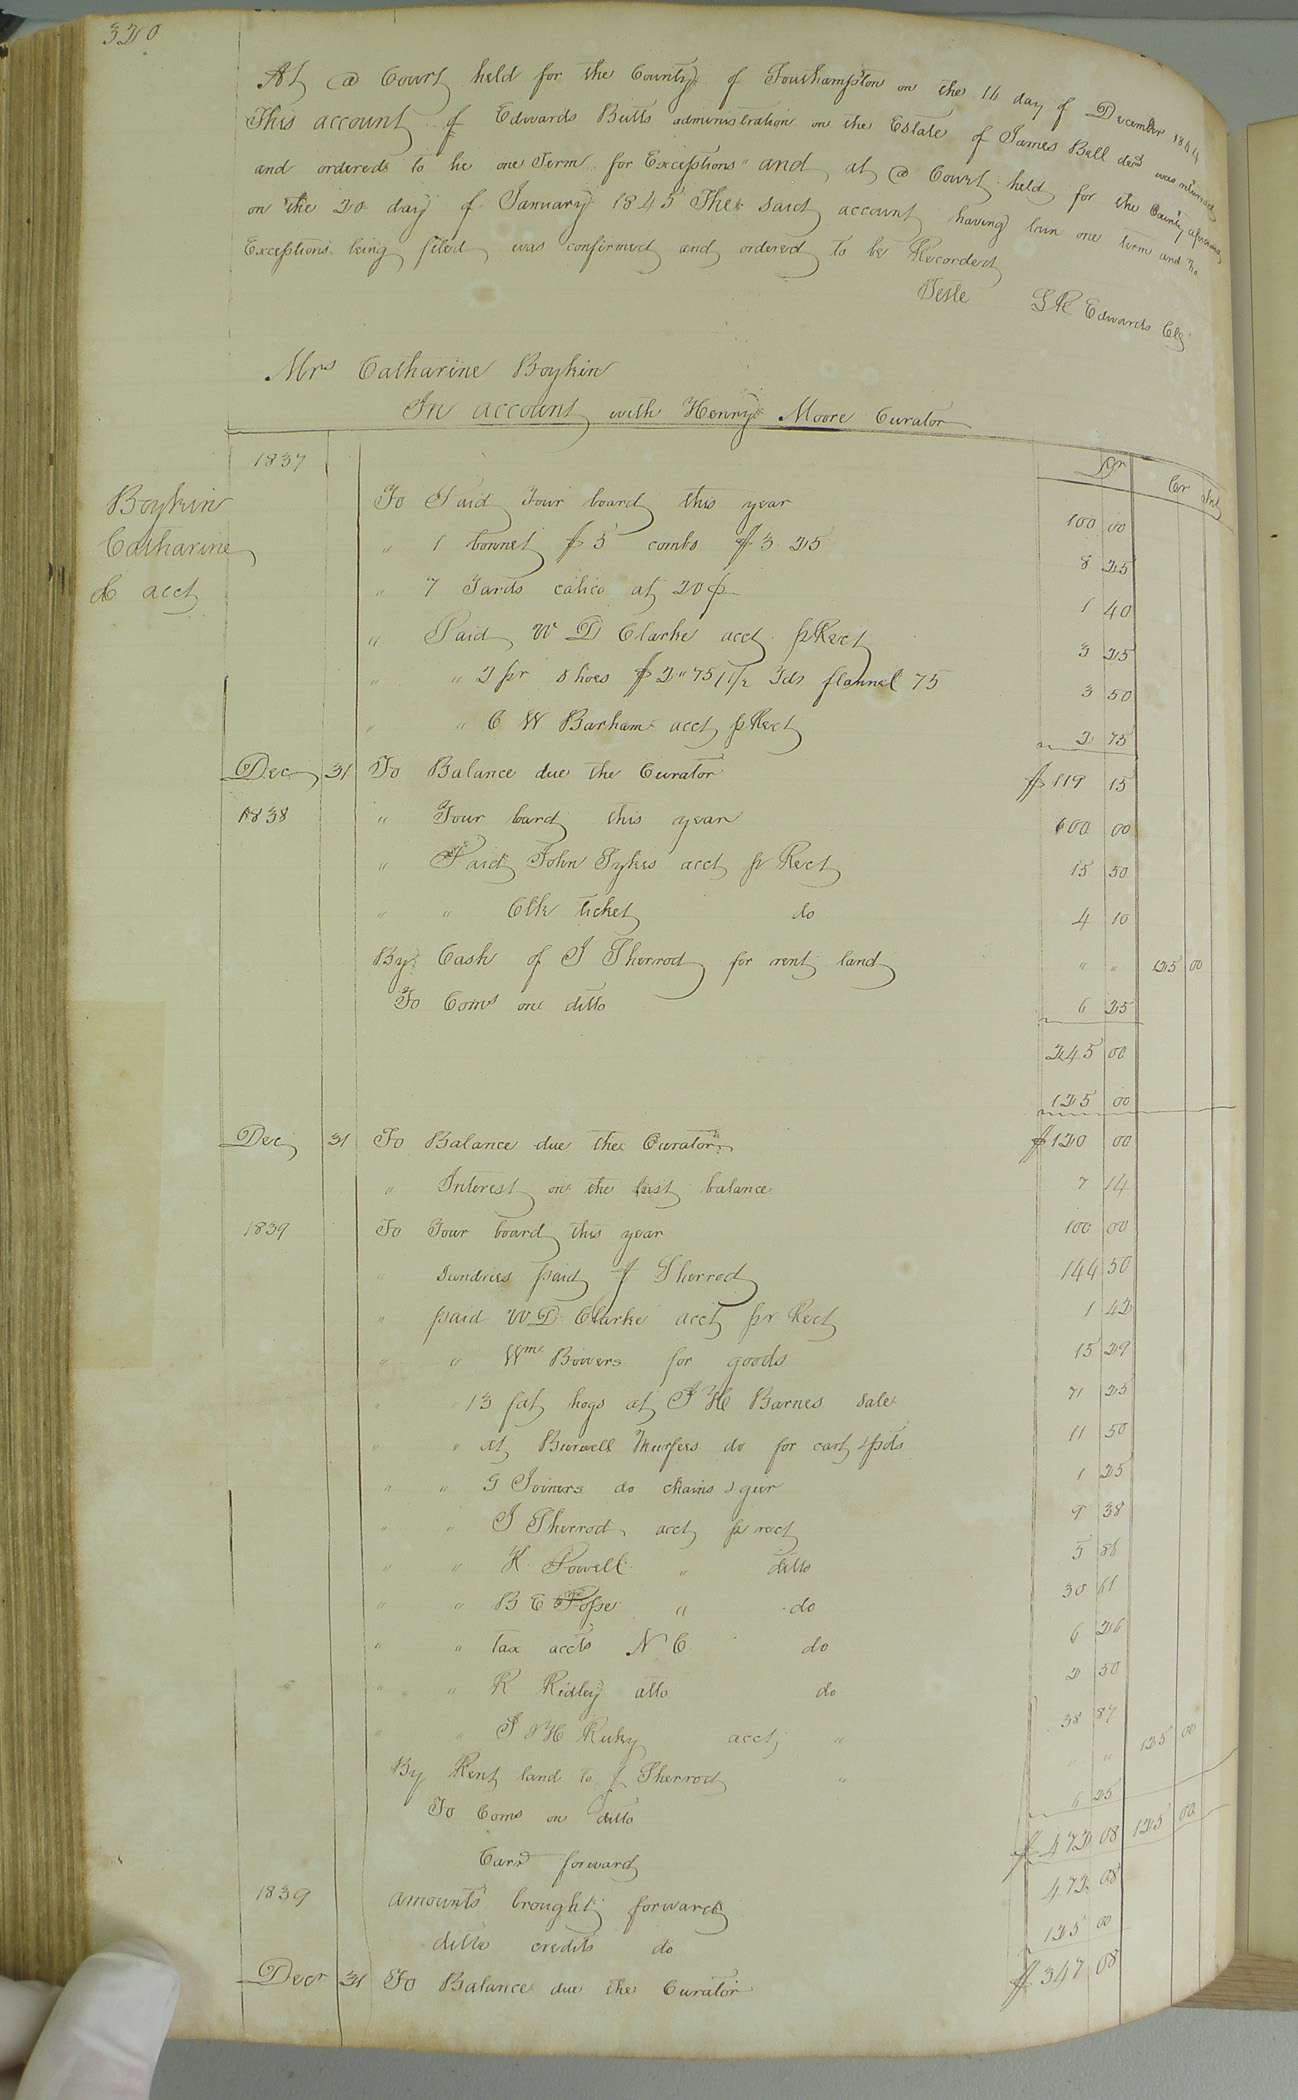 320
At a Court held for the County of Southampton on the 16 day of December 1844
This account of Edwards Butts administration on the Estate of James Bell decd was returned
and ordered to lie one Term for Exceptions and at a Court held for the County aforesaid
on the 20 day of January 1845 The said account having lain one term and no
Exceptions being filed was confirmed and ordered to be Recorded
Teste LR Edwards Clk
Mrs Catharine Boykin
In account with Henry Moore Curator
1837 Dr Cr Int
Boykin
Catharine
acct
To Paid Your board this year 100 00
" 1 bonnet $5 combs $3 25 8 25
" 7 Yards calico at 20¢ 1 40
" Paid W D Clarke acct pRect 3 25
" " 2 pr Shoes $2"75 1 1/2 Yds flannel 75 3 50
" " C W Barham acct pRect 2 75
Dec 31 To Balance due the Curator $119 15
1838 " Your bard this year 100 00
" Paid John Sykes acct pr Rect 15 50
" " Clk ticket do 4 10
By Cash of J Sherrod for rent land " " 125 00
To Coms on ditto 6 25
245 00
125 00
Dec 31 To Balance due the Curator $120 00
" Interest on the last balance 7 14
1839 To Your board this year 100 00
" Sundries paid J Sherrod 144 50
" paid W D Clarke acct pr Rect 1 42
" " Wm Bowers for goods 15 29
" 13 fat hogs at J H Barnes sale 71 25
" " at Burwell Murfees do for cart &pds 11 50
" " G Joiners do chains & gear 1 25
" " J Sherrod acct pr rect 9 38
" " H Powell " ditto 5 86
" " B E " do 30 61
" " Tax accts N C do 6 26
" " R Ridley atto do 2 50
" " J H acct " 38 87
By Rent land to J Sherrod " " " 125 00
To Coms on ditto 6 25
Carrd forward $472 08 125 00
1839 amounts brought forward 472 08
ditto credits do 125 00
Decr 31 To Balance due the Curator $347 08